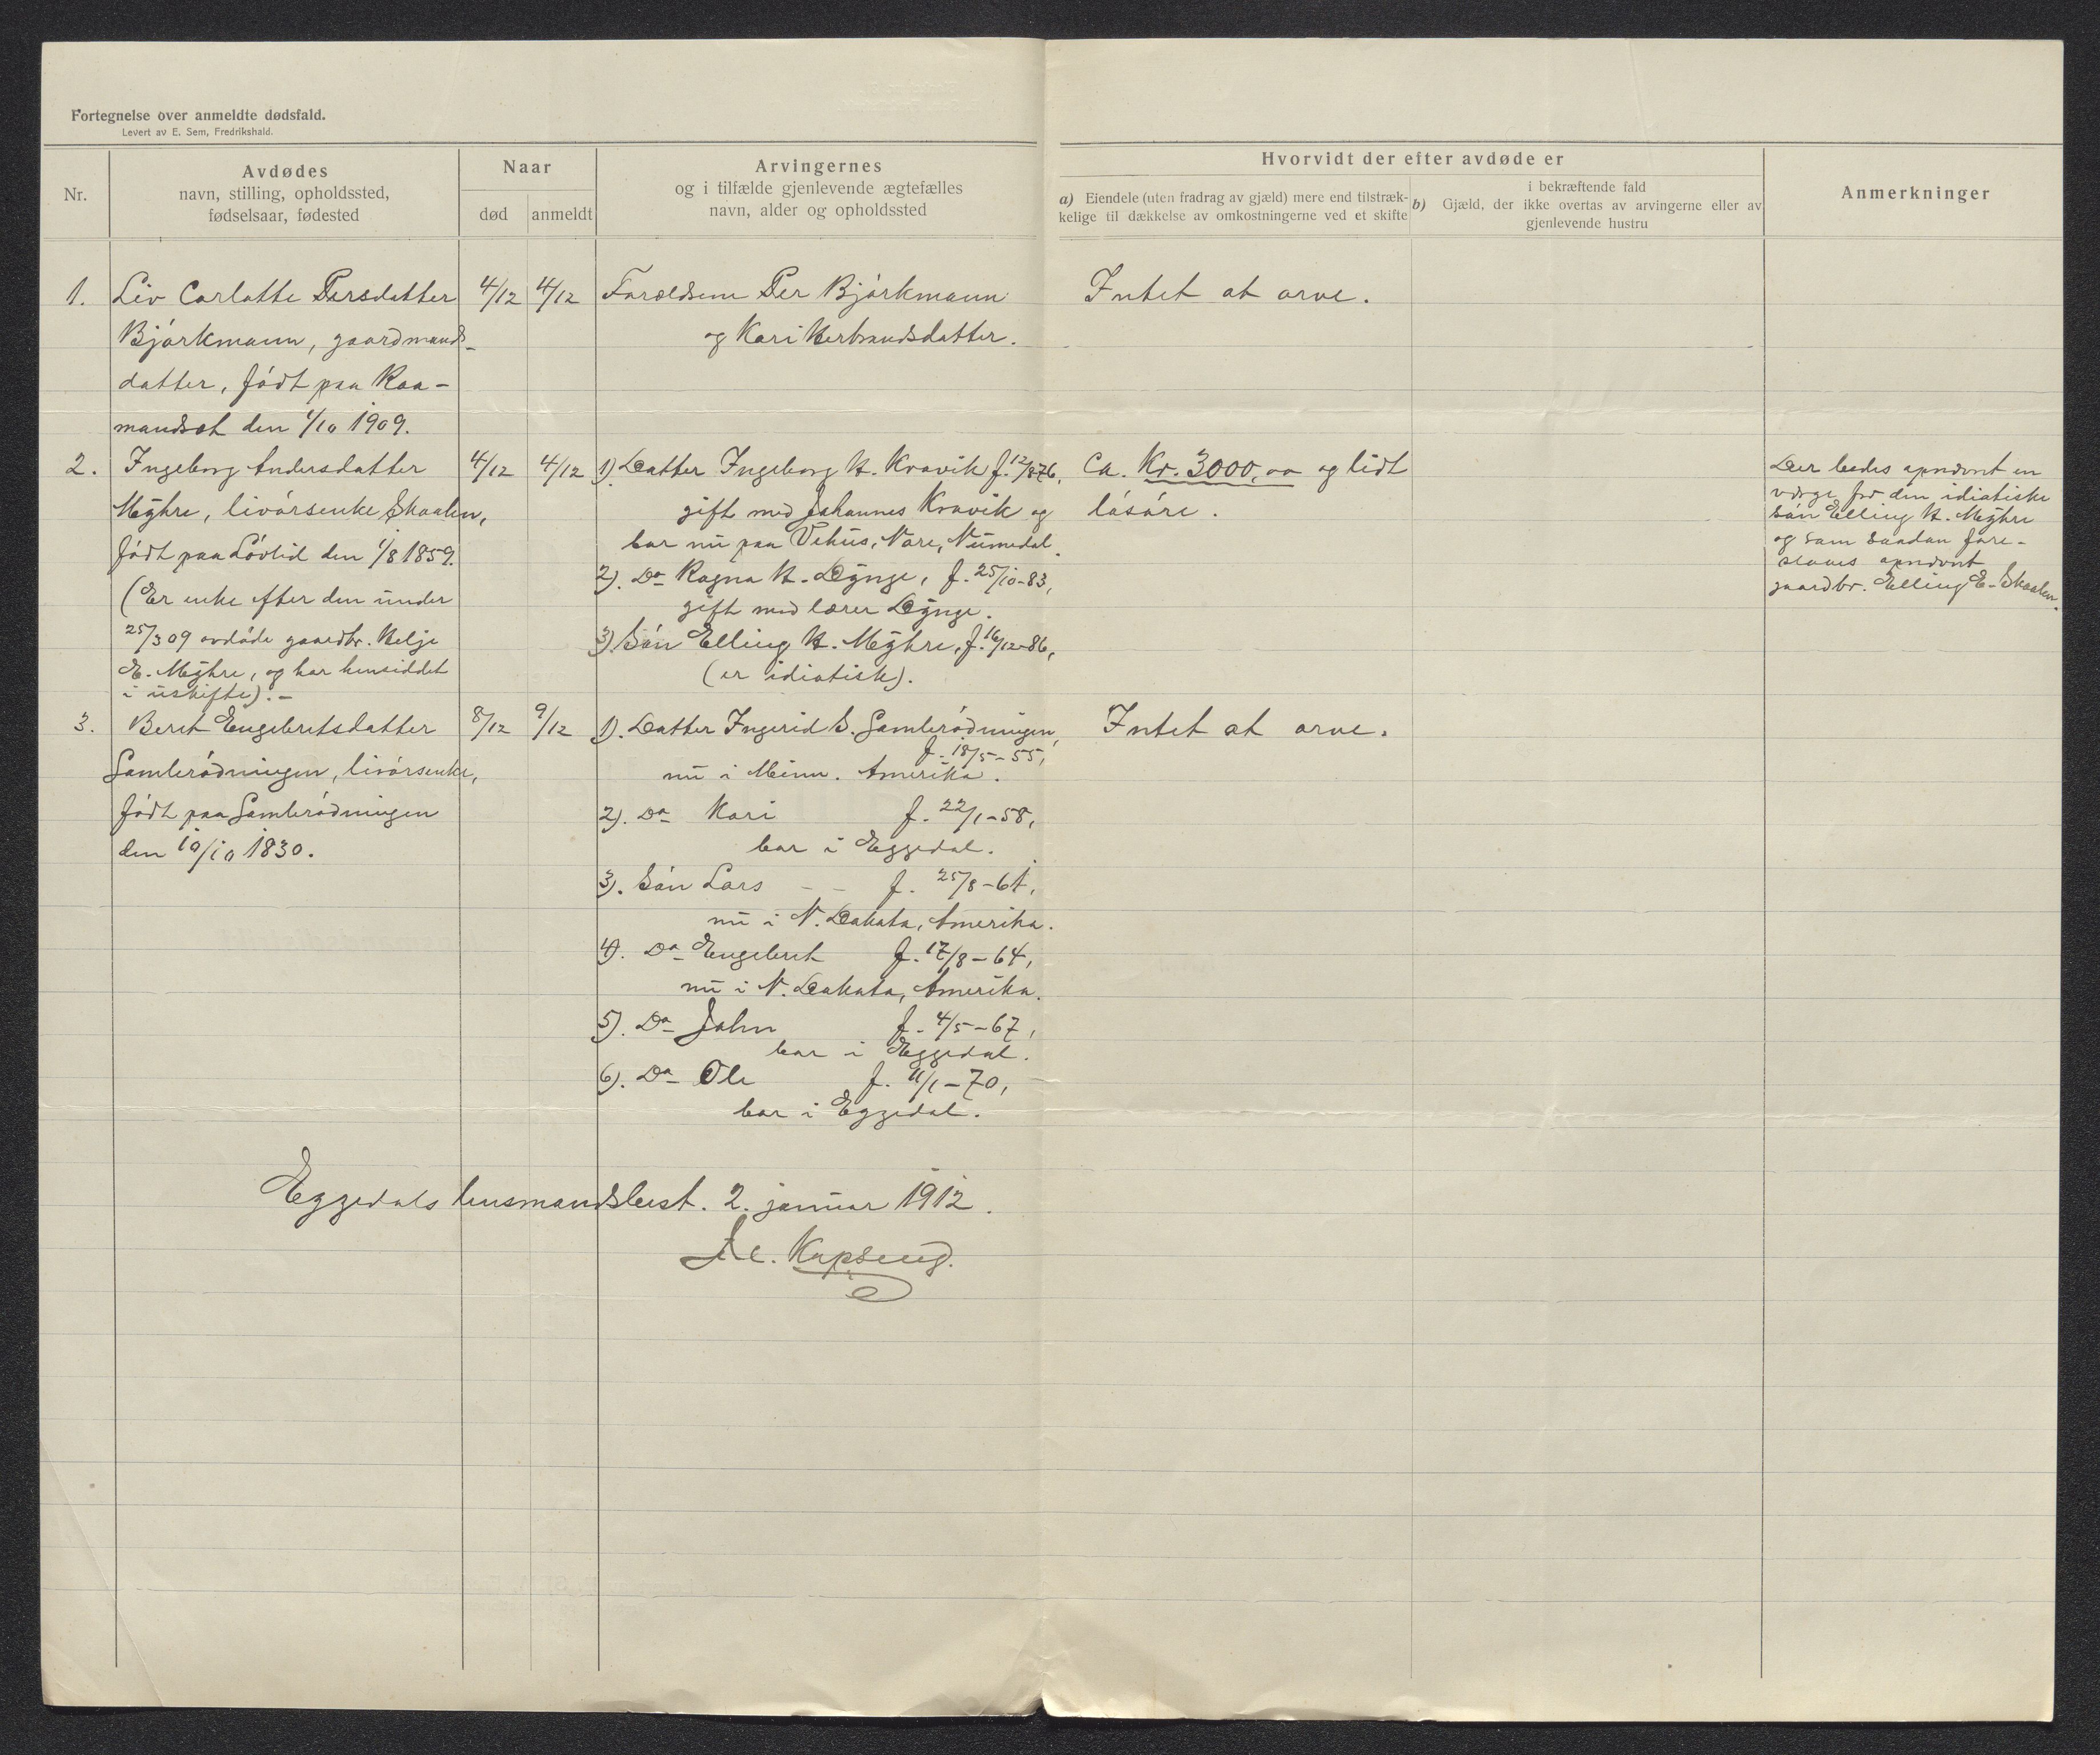 Fortegnelse over anmeldte dødsfald.
Levert av E. Sem, Fredrikshald.
Nr.
Avdødes
navn, stilling, opholdssted,
fødselsaar, fødested
Naar
død
anmeldt
Arvingernes
og i tilfælde gjenlevende ægtefælles
navn, alder og opholdssted
Hvorvidt der efter avdøde er
a) Eiendele (uten fradrag av gjæld) mere end tilstræk-
kelige til dækkelse av omkostningerne ved et skifte
i bekræftende fald
b) Gjæld, der ikke overtas av arvingerne eller av
gjenlevende hustru
Anmerkninger
1. Liv Carlotte Persdatter 4/12 4/12 Forældrene Per Björkmann Intet at arve.
Björkmann, gaardmands- og Kari Herbrandsdatter.
datter, født paa Raa-
mandset den 1/10 1909.
2. Ingeborg Andersdatter 4/12 4/12 1). Datter Ingeborg H. Kravik f. 12/8 76, Ca. Kr. 3000,00 og lidt
Myhre, livörsenke Skaalen, gift med Johannes Kravik og lösöre.
født paa Lövlid den 1/8 1859. bor nu paa Vehus, Nore, Numedal.
(Er enke efter den under 2). Do Ragna H. Dynge, f. 25/10-83,
gift med lærer Dynge.
25/3 09 avdöde gaardbr. Helje 3). Sön Elling H. Myhre, f. 16/12-86,
E. Myhre, og har hensiddet (er idiotisk).
i uskifte). -
Der bedes opnævnt en
værge for den idiotiske
sön Elling H. Myhre
og som saadan fore-
slaaes opnævnt
gaardbr. Elling E. Skaalen.
3. Beret Engebretsdatter 8/12 9/12 1). Datter Ingerid S. Gamlerödningen, Intet at arve.
f. 18/5-55,
Gamlerödningen, livörsenke, nu i Minn. Amerika.
født paa Gamlerödningen 2). Do Kari f. 22/1-58,
den 10/10 1830. bor i Eggedal.
3). Sön Lars - - f. 25/8-61,
nu i N. Dakota, Amerika.
4). Do Engebret f. 17/8-64,
nu i N. Dakota, Amerika.
5). Do John f. 4/5-67,
bor i Eggedal.
6). Do Ole f. 11/1-70,
bor i Eggedal.
Eggedals lensmandsbest. 2. januar 1912.